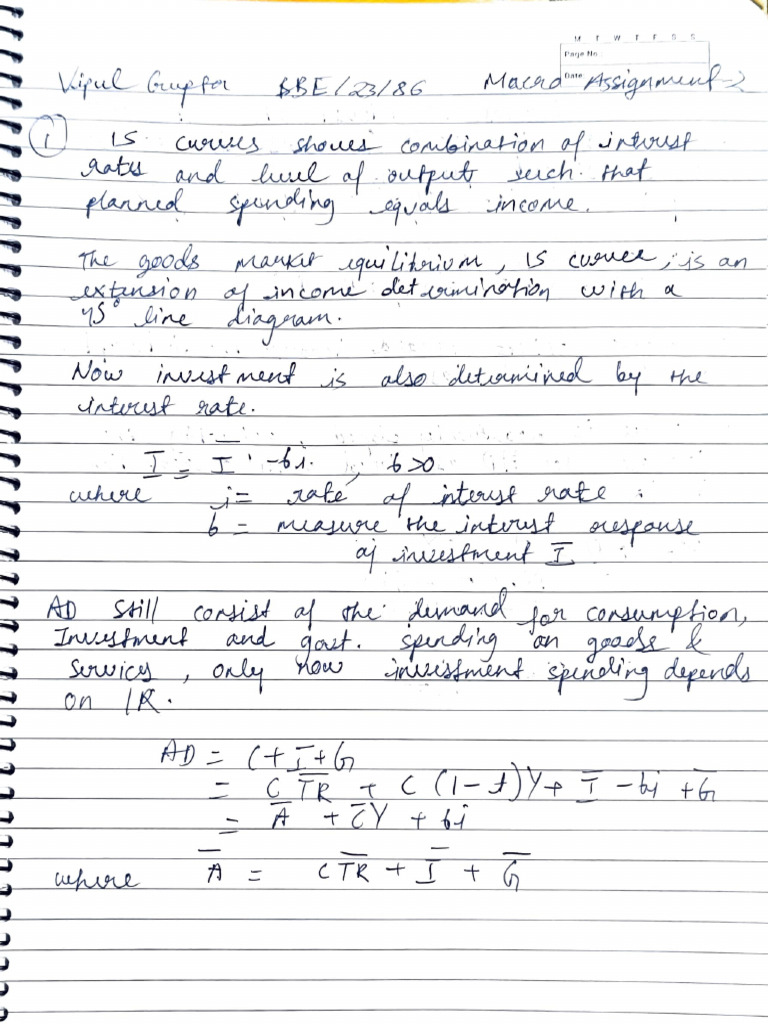 M T W T F S S
Page No.
Date
Vipul Gupta BBE/23/86 Macro Assignment-2
① IS curves shows combination of interest
rates and level of outputs such that
planned spending equals income.
The goods market equilibrium, IS curve, is an
extension of income determination with a
45° line diagram.
Now investment is also determined by the
interest rate.
I = I̅ - bi , b>0
where i = rate of interest rate
b = measure the interest response
of investment I
AD still consist of the demand for consumption,
Investment and govt. spending on goods &
services, only now investment spending depends
on IR.
AD = C+I+G
= C T̅R̅ + C (1-t)Y+ I̅ - bi + G̅
= A̅ + C̅Y + bi
where A̅ = C T̅R̅ + I̅ + G̅